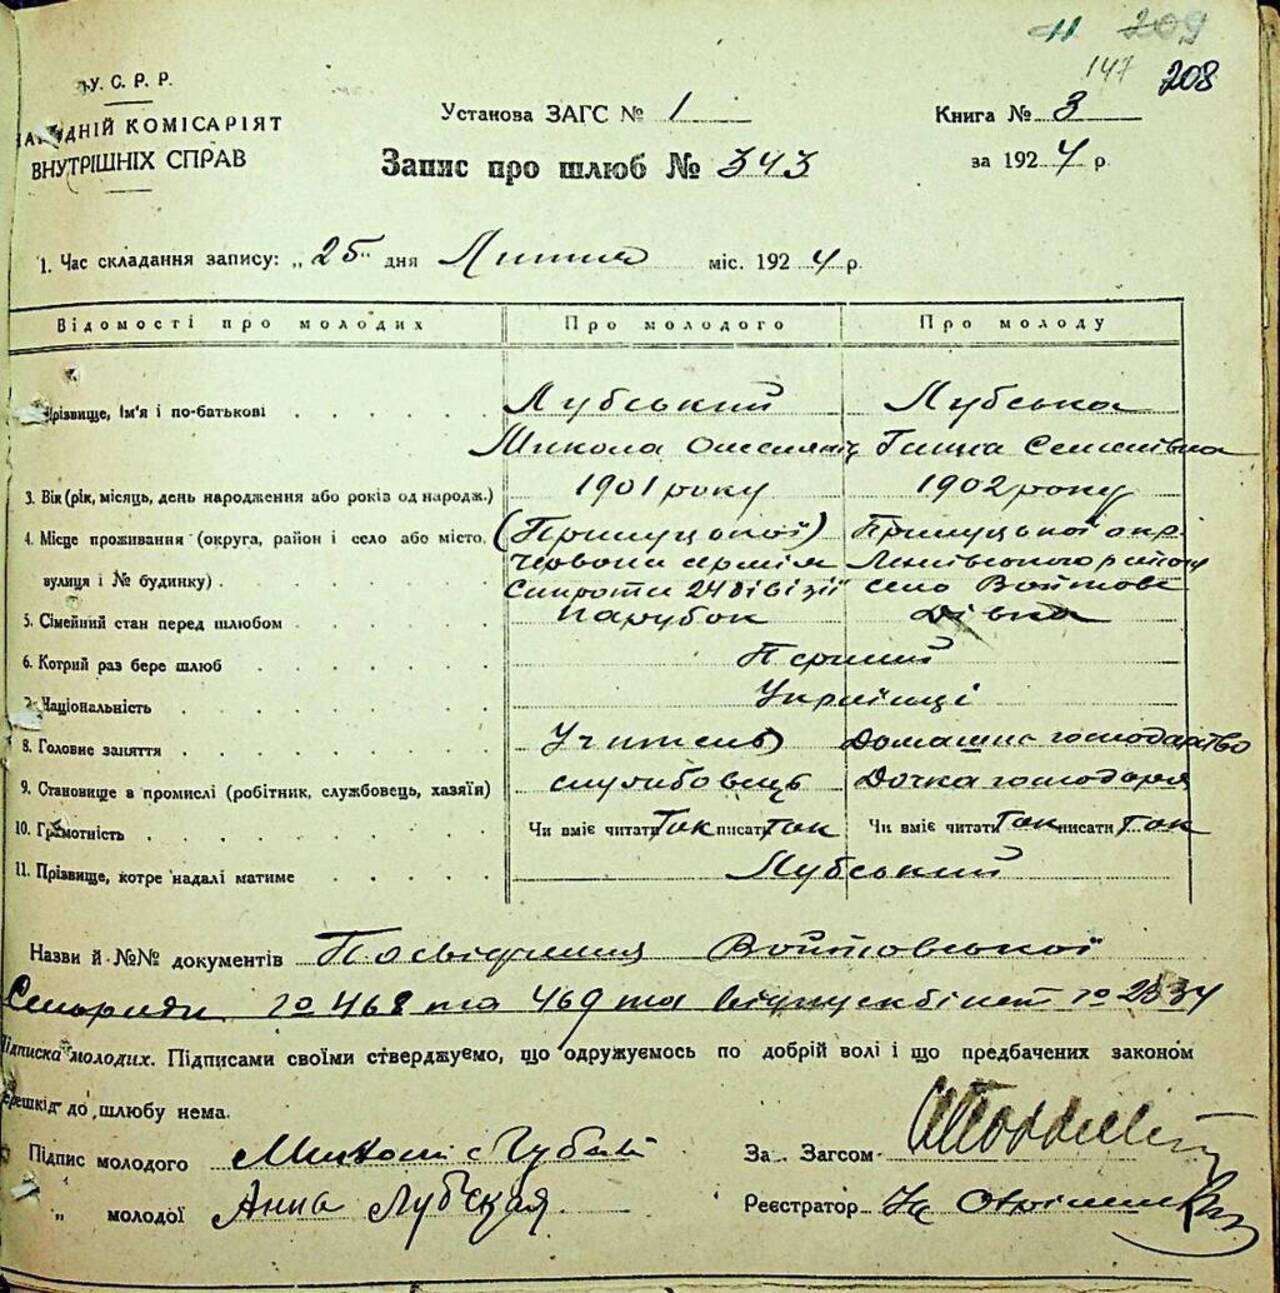 11 209
147 208
У.С.Р.Р.
НАРОДНІЙ КОМІСАРІЯТ
ВНУТРІШНІХ СПРАВ
Установа ЗАГС № 1
Книга № 3
Запис про шлюб № 343
за 1924 р.
1. Час складання запису: „25" дня Липня міс. 1924 р.
Відомості про молодих Про молодого Про молоду
Прізвище, ім'я і по-батькові Лубський Лубська
Микола Ганна Семенівна
3. Вік (рік, місяць, день народження або років од народж.) 1901 року 1902 року
4. Місце проживання (округа, район і село або місто, (Прилуцької) Прилуцької окр.
вулиця і № будинку) Червона армія района
24 дівізії село Войтове
5. Сімейний стан перед шлюбом парубок дівка
6. Котрий раз бере шлюб Перший
7. Національність Українці
8. Головне заняття Учитель Домашнє господарство
9. Становище в промислі (робітник, службовець, хазяїн) службовець Дочка господаря
10. Грамотність Чи вміє читати Так писати так Чи вміє читати Так писати так
11. Прізвище, котре надалі матиме Лубський
Назви й №№ документів Посвідчення Войтовської
Сільради № 468 та 469 та № 2334
Підписка молодих. Підписами своїми стверджуємо, що одружуємось по добрій волі і що предбачених законом
перешкід до шлюбу нема.
Підпис молодого
За Загсом
„ молодої Анна Лубская
Реєстратор